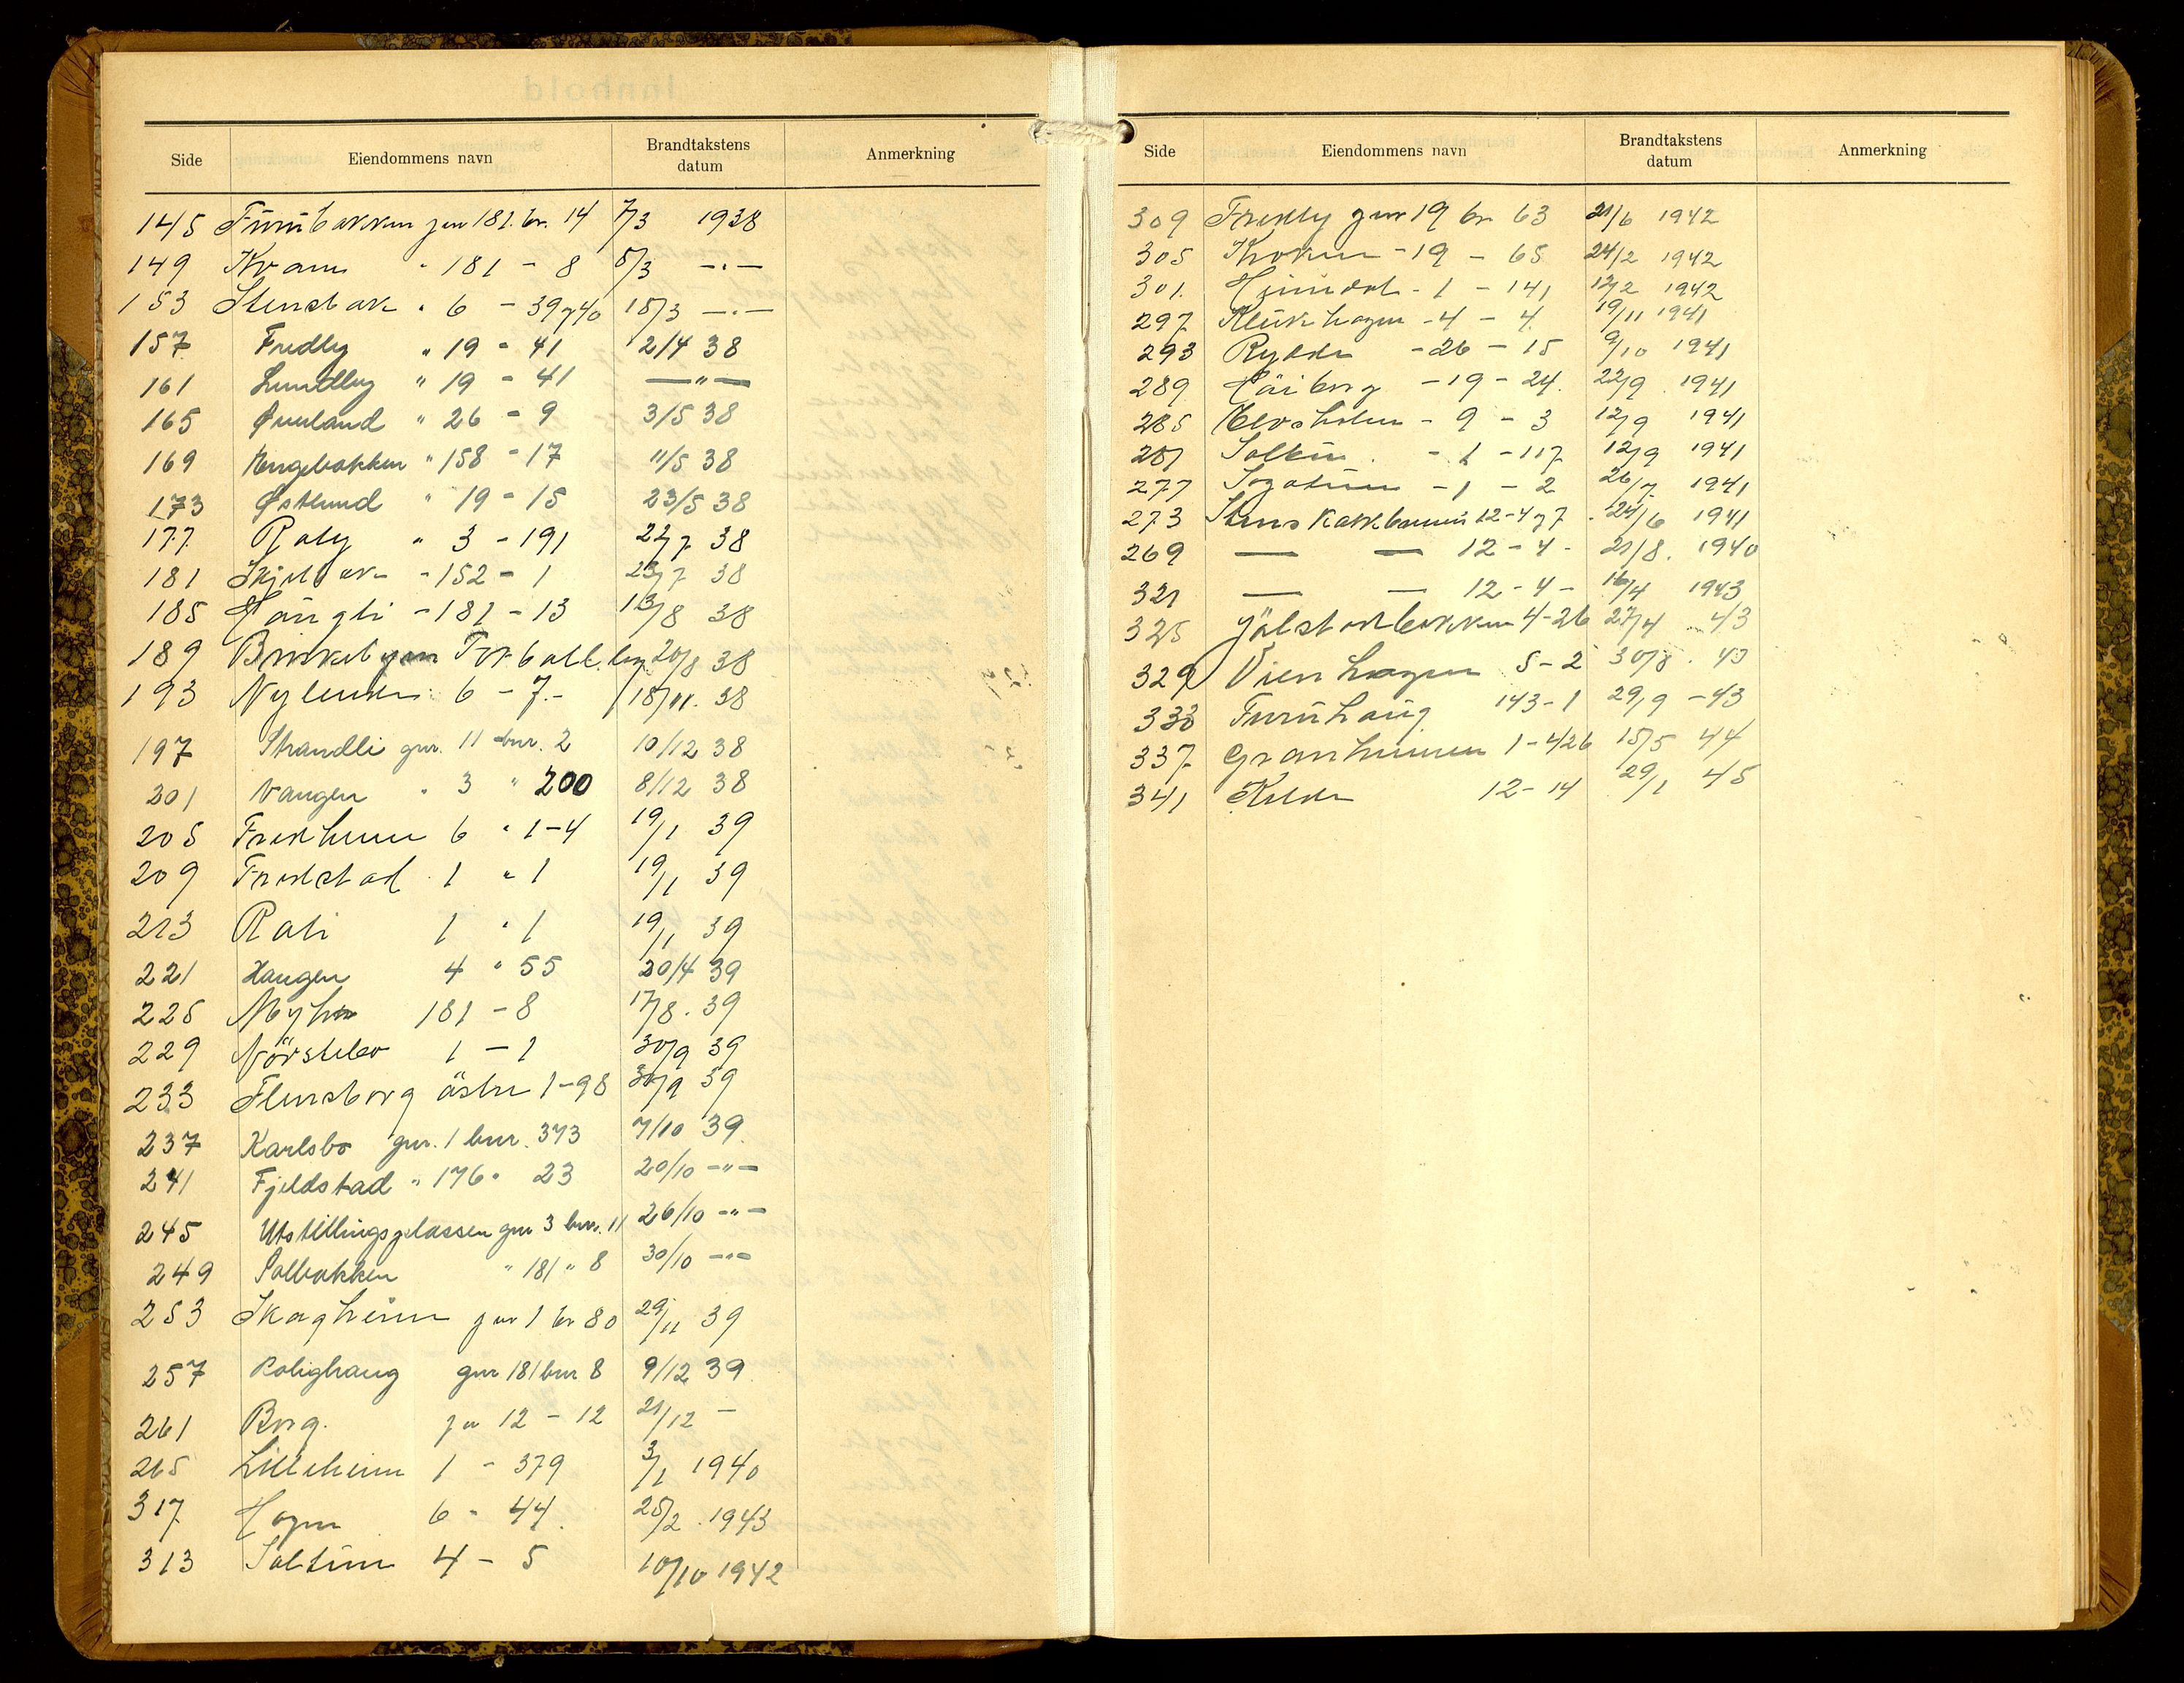 Side Eiendommens navn Brandtakstens datum Anmerkning
145 Furubakken gnr 181. br. 14 7/3 1938
149 Kvam " 181 - 8 8/3 -"-
153 Stensbak " 6 - 39 og 40 18/3 -"-
157 Fredly " 19 - 41 2/4 38
161 Lundby " 19 - 41 -"-
165 Øverland " 26 - 9 3/5 38
169 Engebakken " 158 - 17 11/5 38
173 Østlund " 19 - 15 23/5 38
177 Roly " 3 - 191 22/7 38
181 Skjelbak - 152 - 1 23/7 38
185 Haugli - 181 - 13 13/8 38
189 Briskebyen Fotball. 20/8 38
193 Nylende 6 - 7 - 18/11. 38
197 Strandli gnr. 11 bnr. 2 10/12 38
201 Vangen " 3 " 200 8/12 38
205 Fredheim 6 " 1-4 19/1 39
209 Fredstad 1 " 1 19/1 39
213 Roli 1 " 1 19/1 39
221 Haugen 4 " 55 20/4 39
225 Myhr 181 - 8 17/8. 39
229 Nörstebo 1 - 1 30/9 39
233 Flensborg östre 1-98 30/9 39
237 Karlsbo gnr. 1 bnr. 373 7/10 39
241 Fjeldstad " 176 " 23 20/10 -"-
245 Utstillingsplassen gnr 3 bnr. 11 26/10 -"-
249 Solbakken " 181 " 8 30/10 -"-
253 Skogheim gnr 1 br 80 29/11 39
257 Rolighaug gnr 181 bnr 8 9/12 39
261 Borg. gn 12 - 12 21/12 -
265 Lilleheim 1 - 379 3/1 1940
317 Hagen 6 - 44. 25/2. 1943
313 Soltun 4 - 5 10/10 1942
Side Eiendommens navn Brandtakstens datum Anmerkning
309 Fredly gnr 19 br 63 21/6 1942
305 Kroken - 19 - 65 24/2 1942
301. Heimdal - 1 - 141 12/2 1942
297 Klukhagen - 4 - 4. 19/11 1941
293 Rydde - 26 - 15 9/10 1941
289 Höiborg - 19 - 24. 22/9 1941
285 Elvsholm - 9 - 3 12/9 1941
281 - 1 - 117 12/9 1941
277 - 1 - 2 26/7 1941
273 12-4 og 7 24/6 1941
269 — — 12 - 4 - 21/8. 1940
321 — — 12 - 4 - 16/4 1943
325 Jölstadbakken 4-26 27/4 43
329 Vienhagen 5 - 2 30/8. 43
333 Furuhaug 143-1 29/9 - 43
337 Granheimen 1-426 15/5 44
341 Kilde 12-14 29/1 45